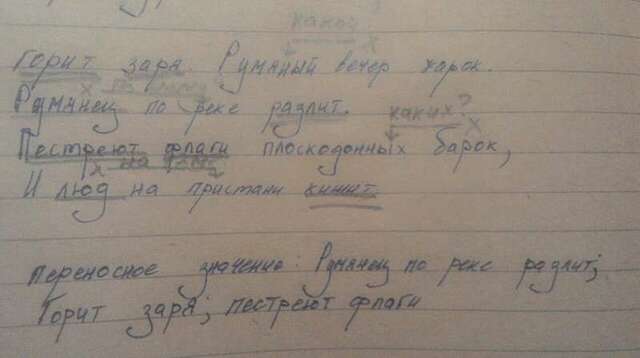 какой
Горит заря. Румяный вечер жарок.
Румянец по реке разлит. каких?
Пестреют флаги плоскодонных барок,
И люд на пристани кишит.
Переносное значение: Румянец по реке разлит;
Горит заря; пестреют флаги